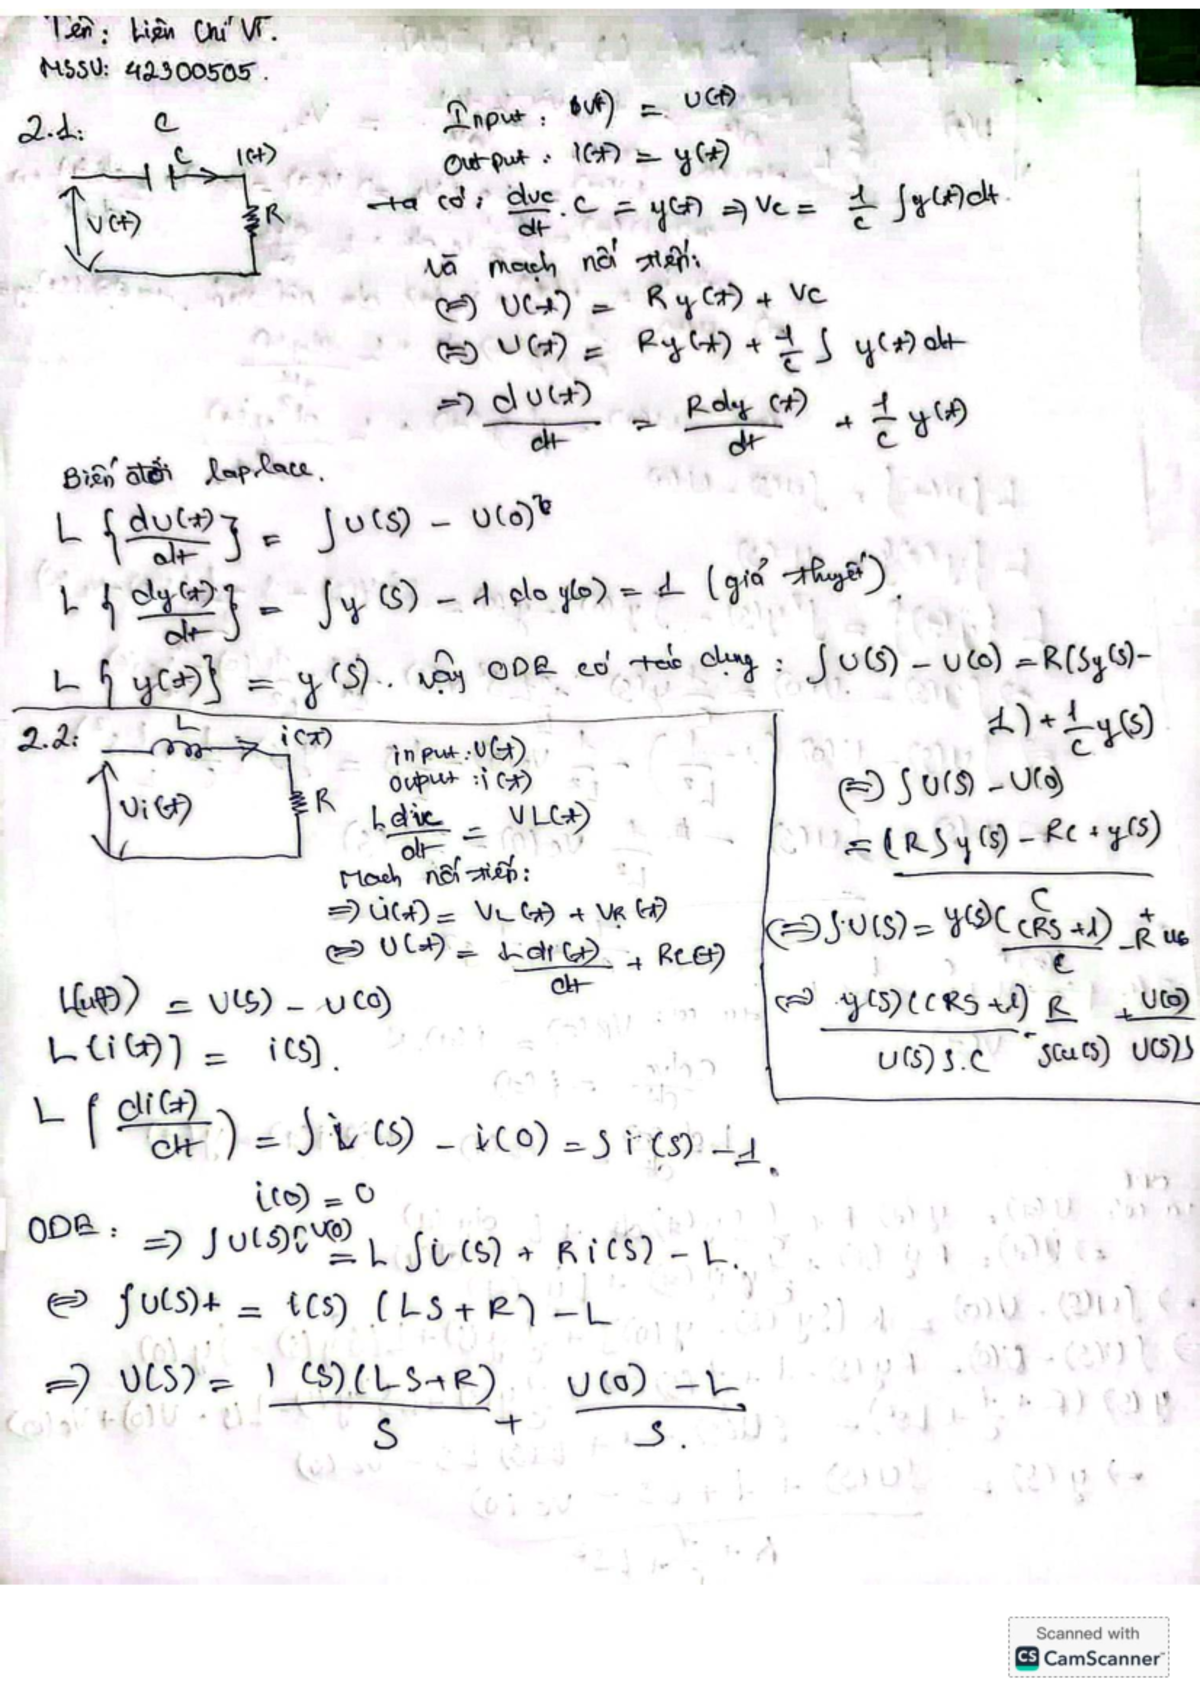 Tên: Liên Chí Vĩ.
MSSV: 42300505.
2.1:
C
C
i(t)
U(t)
R
Input: = U(t)
Output: i(t) = y(t)
ta có: dvc/dt . C = y(t) => Vc = 1/C ∫y(t)dt.
Là mạch nối tiếp:
(=) U(t) = Ry(t) + Vc
(=) U(t) = Ry(t) + 1/C ∫ y(t) dt
=> dU(t)/dt = Rdy(t)/dt + 1/C y(t)
Biến đổi laplace.
L{dU(t)/dt} = SU(S) - U(0)
L{dy(t)/dt} = Sy(S) - 1 do y(0) = 1 (giả thuyết).
L{y(t)} = y(S). Vậy ODE có dạng: SU(S) - U(0) = R(Sy(S) -
1) + 1/C y(S)
(=) SU(S) - U(0)
= (RSy(S) - RC + y(S)
C
(=) S.U(S) = y(S)(CRS + 1)/C - R +
(=) y(S)(CRS + 1)/U(S)S.C - R + U(0)/U(S)S
2.2:
L
i(t)
Ui(t)
R
input: U(t)
ouput: i(t)
Ldic/dt = VL(t)
Mạch nối tiếp:
=> U(t) = VL(t) + VR(t)
(=) U(t) = Ldi(t)/dt + RC(t)
L(u(t)) = U(S) - U(0)
L{i(t)} = i(S).
L{di(t)/dt} = Si(S) - i(0) = Si(S) - 1.
i(0) = 0
ODE: => SU(S) U(0) = LSi(S) + Ri(S) - L.
(=) SU(S)+ = i(S) (LS + R) - L
=> U(S) = I(S)(LS+R)/S + U(0) - L/S.
Scanned with
CS CamScanner